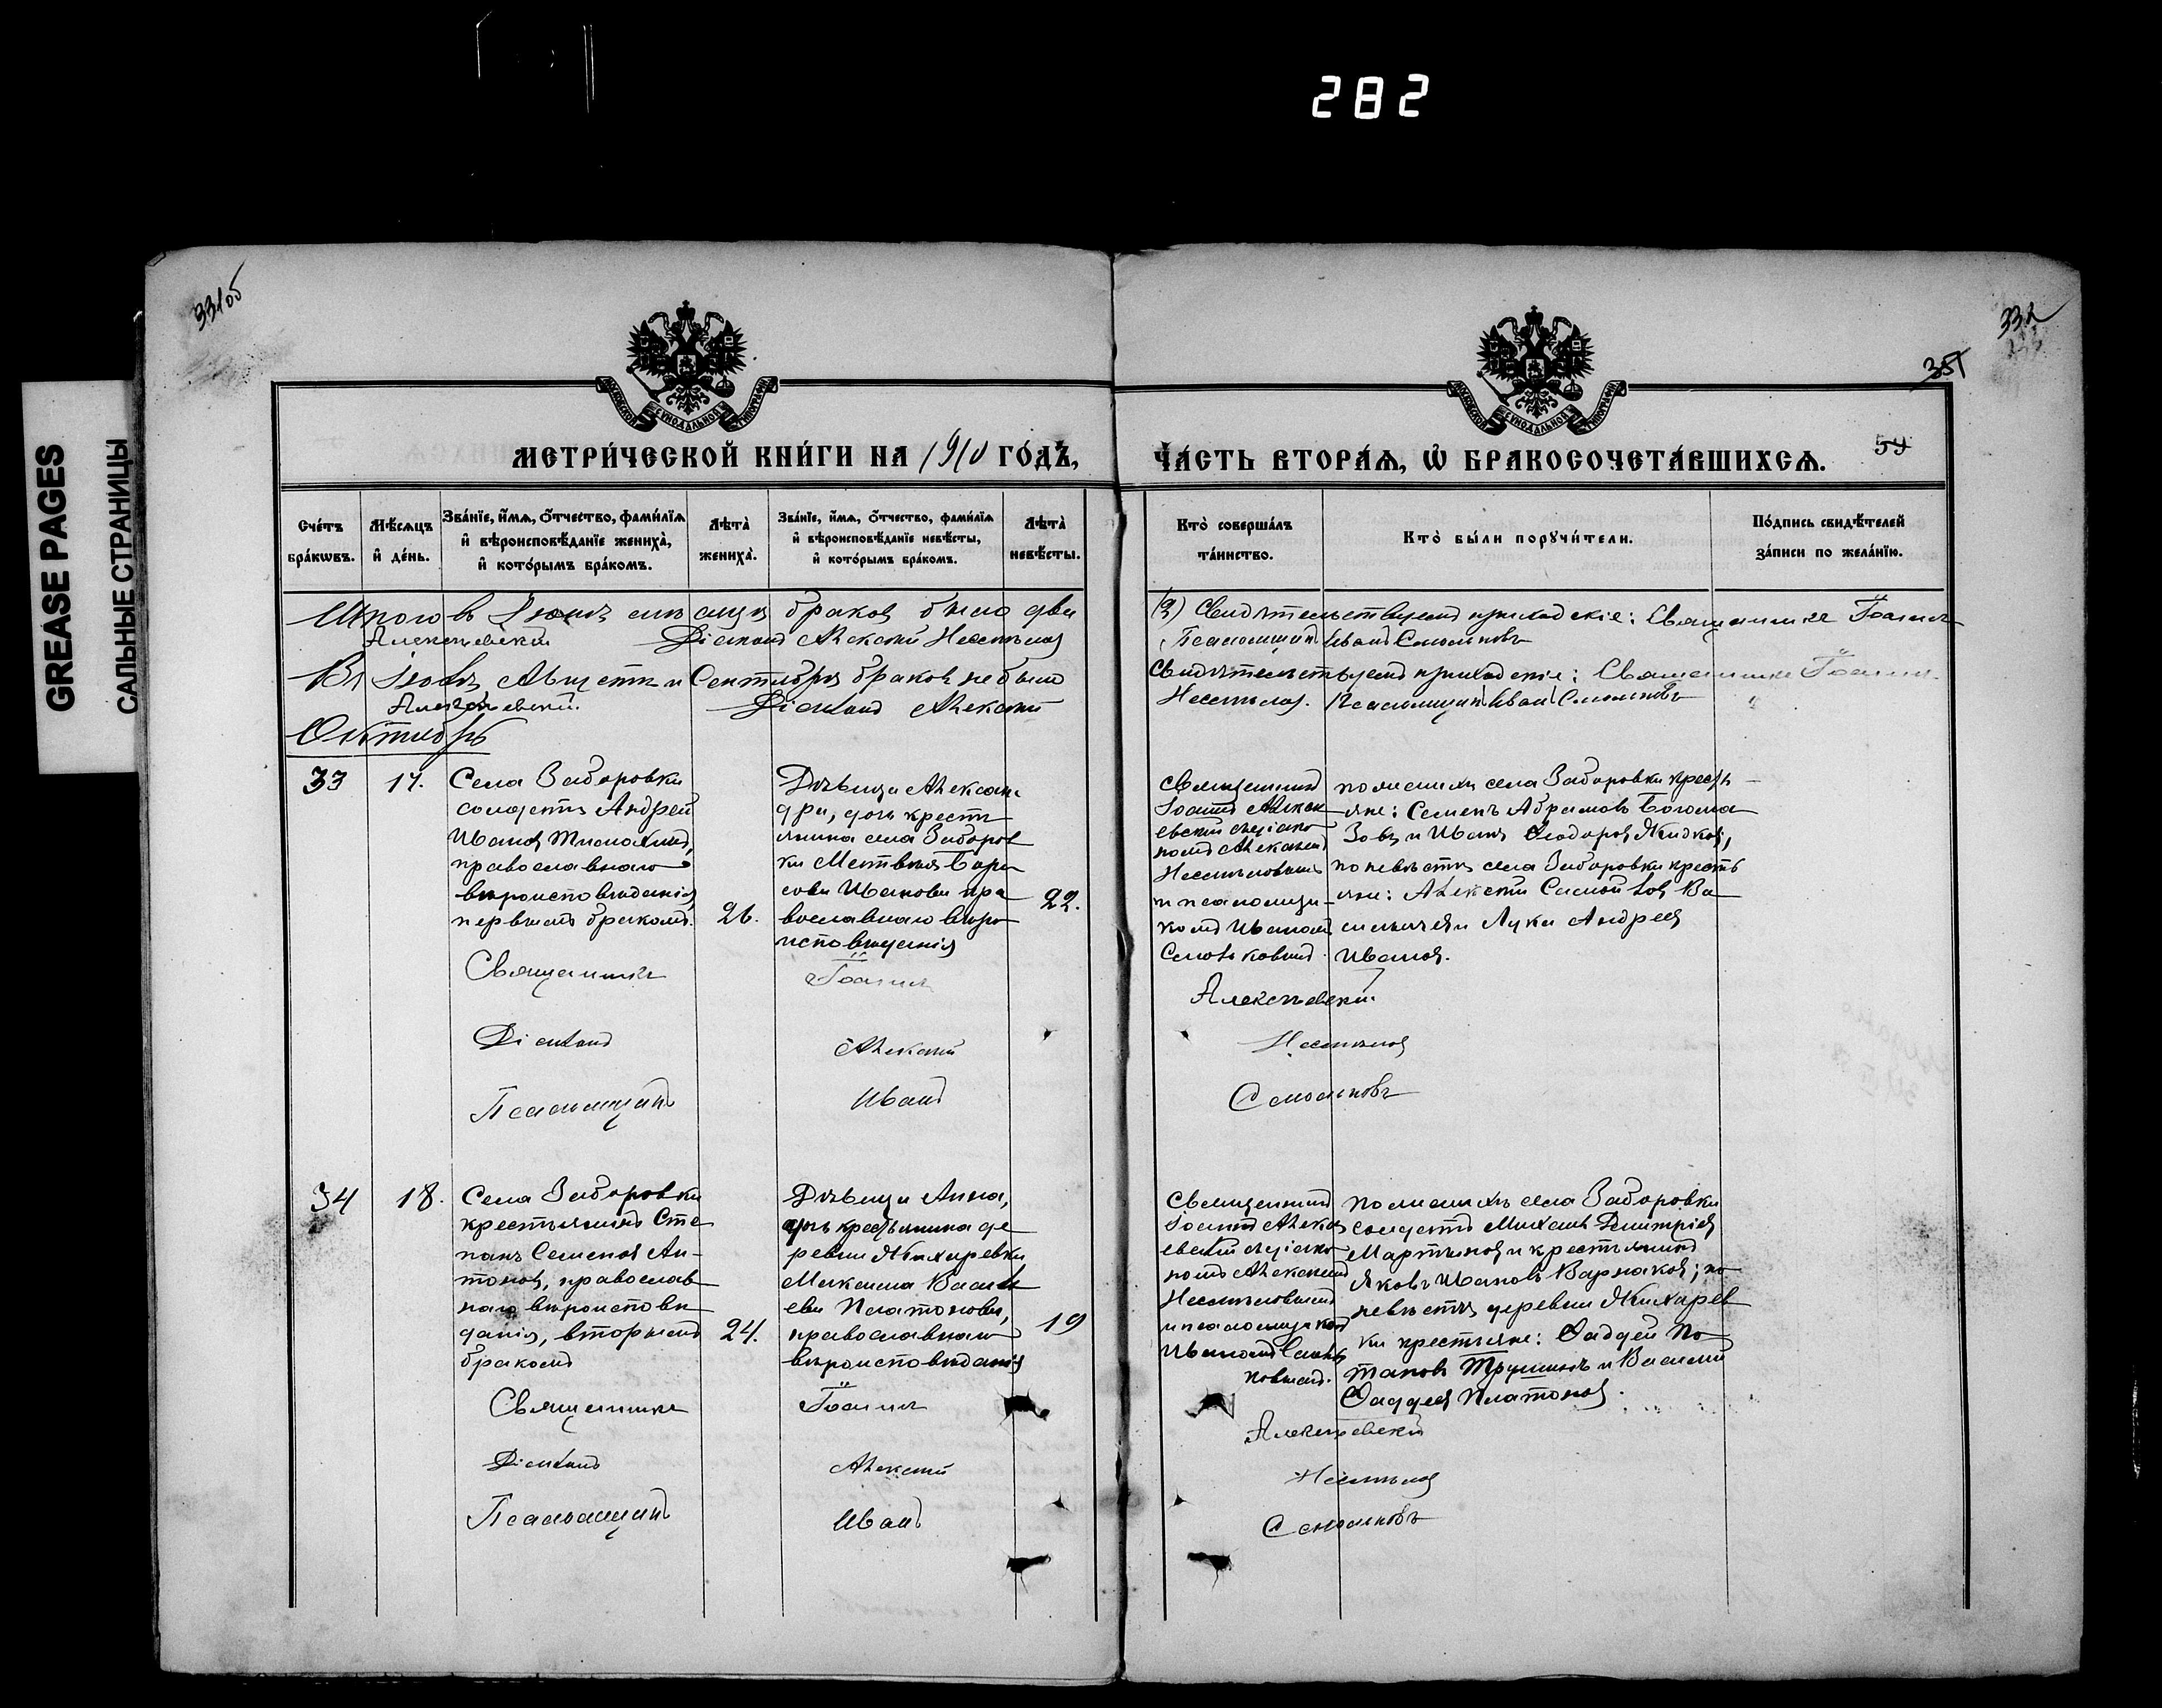 282
GREASE PAGES
САЛЬНЫЕ СТРАНИЦЫ
331об
332
351
59
МЕТРИ́ЧЕСКОЙ КНИ́ГИ НА 1910 ГО́ДЪ,
ЧА́СТЬ ВТОРА́Ѧ, Ѽ БРАКОСОЧЕТА́ВШИХСѦ.
Сче́тъ бра́кѡвъ.
Мѣ́сѧцъ и҆ де́нь.
Зва́нїе, и҆́мѧ, ѻ҆́тчество, фами́лїѧ
и҆ вѣроисповѣ́данїе жениха̀,
и҆ кото́рымъ бра́комъ.
Лѣта̀ жениха̀.
Зва́нїе, и҆́мѧ, ѻ҆́тчество, фами́лїѧ
и҆ вѣроисповѣ́данїе невѣ́сты,
и҆ кото́рымъ бра́комъ.
Лѣта̀ невѣ́сты.
Кто̀ соверша́лъ та́инство.
Кто̀ бы́ли порꙋчи́тели.
По́дпись свидѣ́телей за́писи по жела́нїю.
Итого въ Іюнѣ мѣсяцѣ браков было два
(2) Свидѣтельствуемъ приходскіе: Священникъ Іоаннъ
Алексѣевскій Діаконъ Алексѣй Несмѣловъ
Псаломщикъ Иванъ Смольковъ
Въ Іюлѣ, Августѣ и Сентябрѣ браковъ не было
Свидѣтельствуемъ приходскіе: Священникъ Іоаннъ
Алексѣевскій. Діаконъ Алексѣй
Несмѣловъ. Псаломщикъ Иванъ Смольковъ
Октябрь
33
17.
Села Заборовки
солдатъ Андрей
Ивановъ
православнаго
вѣроисповѣданія,
первымъ бракомъ.
26.
Дѣвица Алексан-
дра, дочь кресть
янина села Заборов
ки Матвѣя Бори
сова Иванова пра
вославнаго вѣро
исповѣданія
22.
Священникъ
Іоаннъ Алексѣ
евскій съ діако
номъ Алексѣемъ
Несмѣловымъ
и псаломщи-
комъ Иваномъ
Смольковымъ.
По женихѣ села Заборовки кресть-
яне: Семенъ Абрамовъ
и Иванъ Ѳеодоровъ Жидковъ,
по невѣстѣ села Заборовки кресть
яне: Алексѣй Самойловъ Ва
сильевъ и Лука Андреевъ
Ивановъ.
Священникъ Іоаннъ Алексѣевскій
Діаконъ Алексѣй Несмѣловъ
Псаломщикъ Иванъ Смольковъ
34
18.
Села Заборовки
крестьянинъ Сте
панъ Семеновъ Ан-
тоновъ, православ
наго вѣроисповѣ
данія, вторымъ
бракомъ
24.
Дѣвица Анна,
дочь крестьянина де
ревни Жихаревки
Максима Василь
ева Платонова,
православнаго
вѣроисповѣданія
19
Священникъ
Іоаннъ Алексѣ
евскій съ діако
номъ Алексѣемъ
Несмѣловымъ
и псаломщикомъ
Иваномъ Смоль
ковымъ.
По женихѣ села Заборовки
солдатъ Михаилъ Димитріевъ
Мартыновъ и крестьянинъ
Яковъ Ивановъ Варнаковъ; по
невѣстѣ деревни Жихарев
ки крестьяне: Ѳаддей По
таповъ Трушинъ и Василий
Ѳаддеевъ Платоновъ.
Священникъ Іоаннъ Алексѣевскій
Діаконъ Алексѣй Несмѣловъ
Псаломщикъ Иванъ Смольковъ